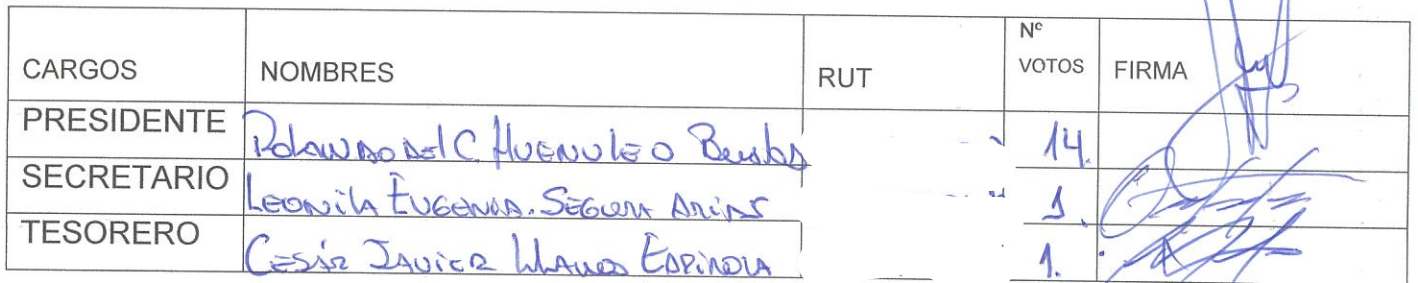 CARGOS NOMBRES RUT Nº VOTOS FIRMA
PRESIDENTE Rolando del C. Huenuleo Bustos 14.
SECRETARIO Leonila Eugenia. Segura Arias 1.
TESORERO Cesár Javier Llanos Espinola 1.